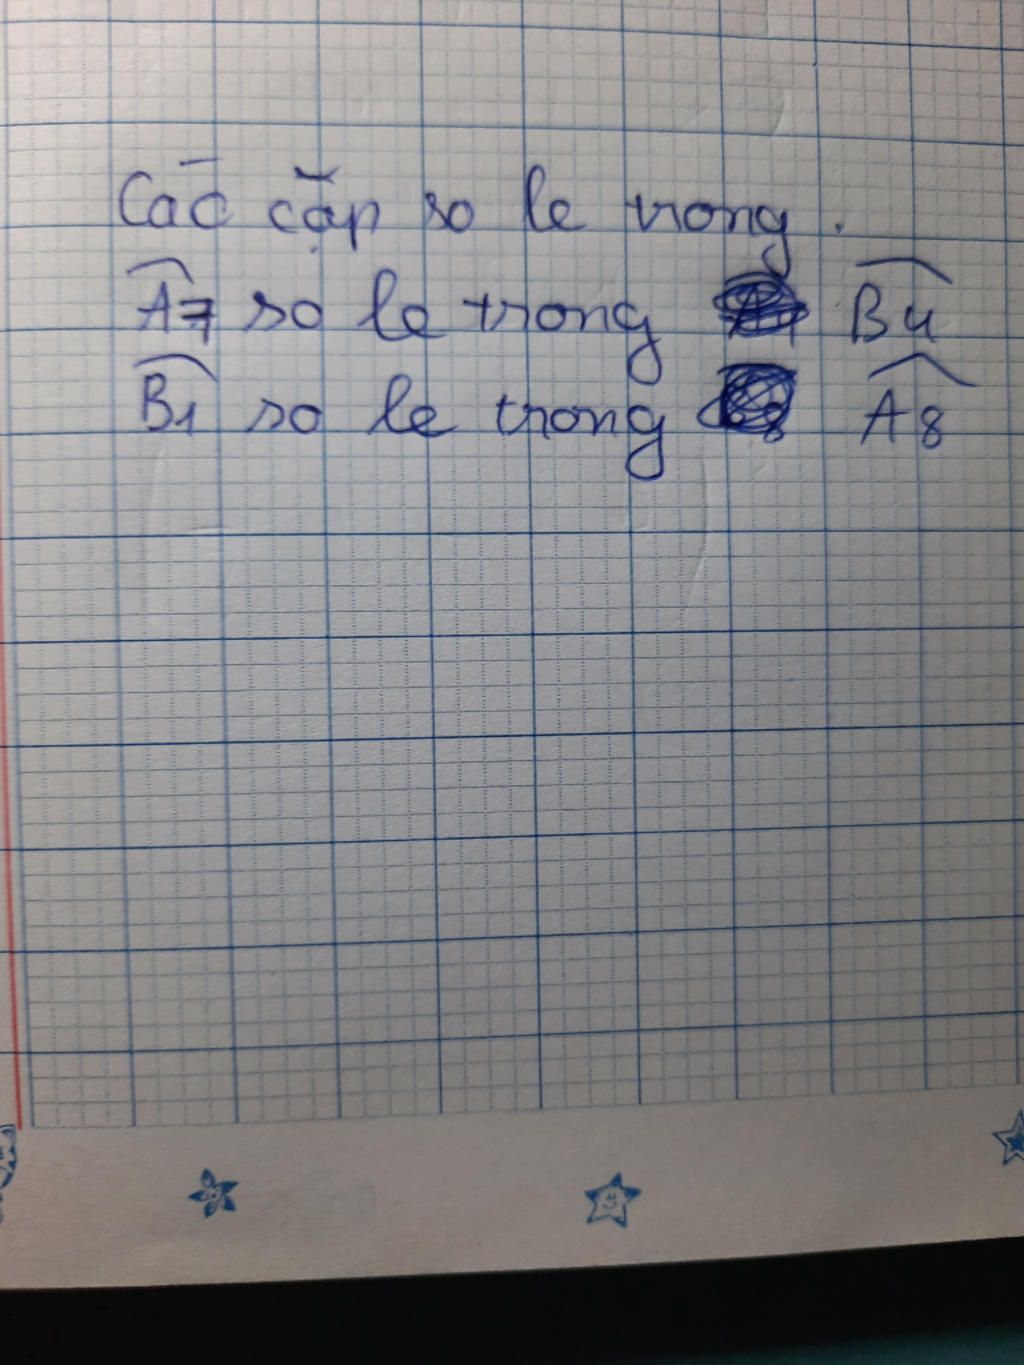 Các cặp so le trong.
A7 so le trong B4
B1 so le trong A8